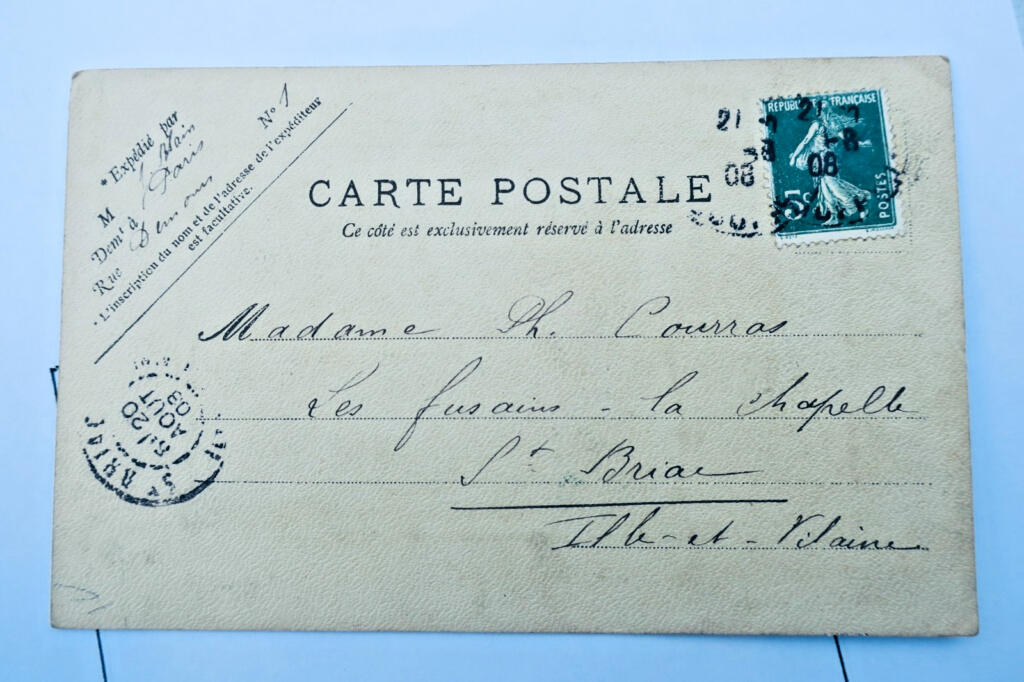 * Expédié par
N° 1
M
Dem.t à Paris
Rue Demours
* L'inscription du nom et de l'adresse de l'expéditeur
est facultative.
CARTE POSTALE
Ce côté est exclusivement réservé à l'adresse
REPUBLIQUE FRANÇAISE
5c
POSTES
21
08
21
8
08
Madame Ph. Courras
Les fusains - la Chapelle
St Briac
Ille-et-Vilaine
20
AOUT
St BRIAC